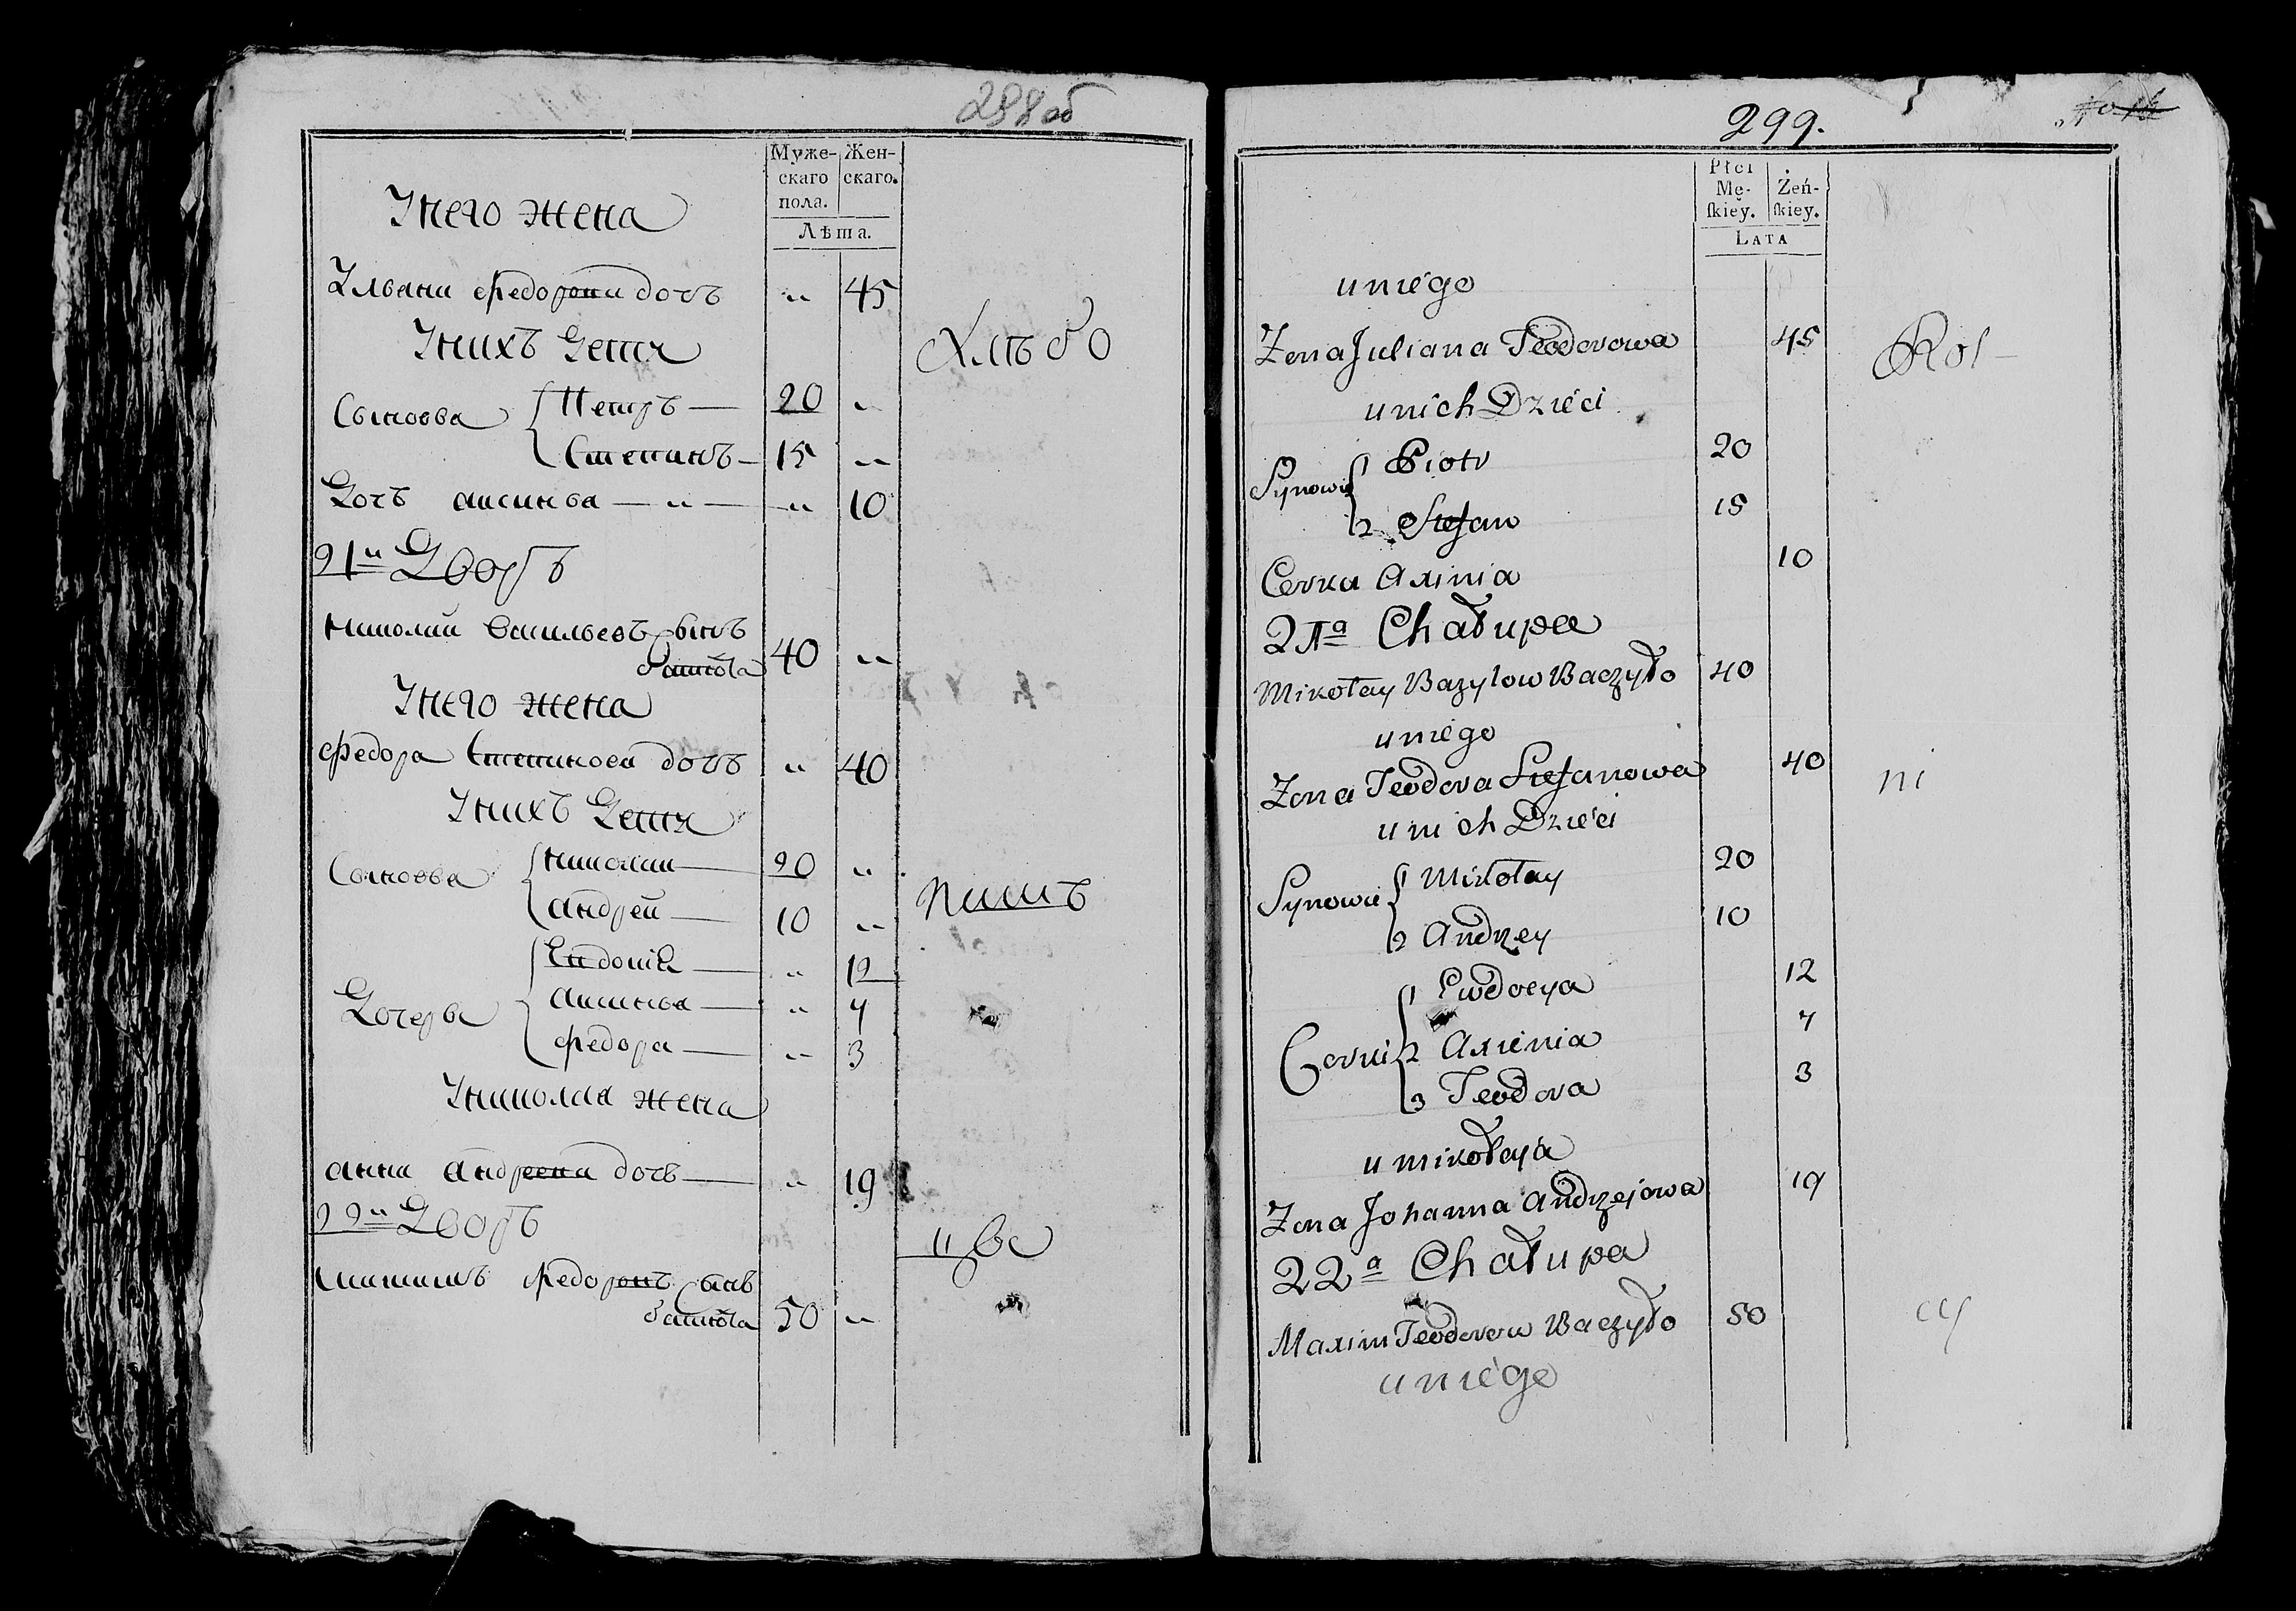 298об
Муже- Жен-
скаго скаго.
пола.
Лѣта.
У него жена
Ульана Федорова дочь " 45
У нихъ Дети
Хлѣбо
Сыновва Петръ 20 "
Степанъ 15 "
Дочь аксинья " " 10
21й Дворъ
николай васильевъ сынъ
40 "
У него жена
Федора Степанова дочь " 40
У нихъ Дети
Сыновва николай 20 "
андрей 10 "
пашъ
" 12
Дочерьи аксинья " 7
Федора " 3
У николая жена
анна андреева дочь " 19
22й Дворъ
цы
максимъ Федоровъ сынъ
50 "
299.
Płci
Mę- Żeń-
skiey. skiey.
LATA
u niego
Zona Juliana Teodorowa 45
Rol-
u nich Dzieci
Synowie 1 Piotr 20
2 Stefan 15
Corka Axinia 10
21a Chałupa
Mikołay Bazylow Baczyło 40
u niego
Zona Teodora Stefanowa 40
ni
u nich Dzieci
Synowie 1 Mikołay 20
2 Andrzey 10
1 Ewdocya 12
Corki 2 Axienia 7
3 Teodora 3
u mikołaja
Zona Johanna Andrzejowa 19
22a Chałupa
Maxim Teodorow Baczyło 50
cy
u niego